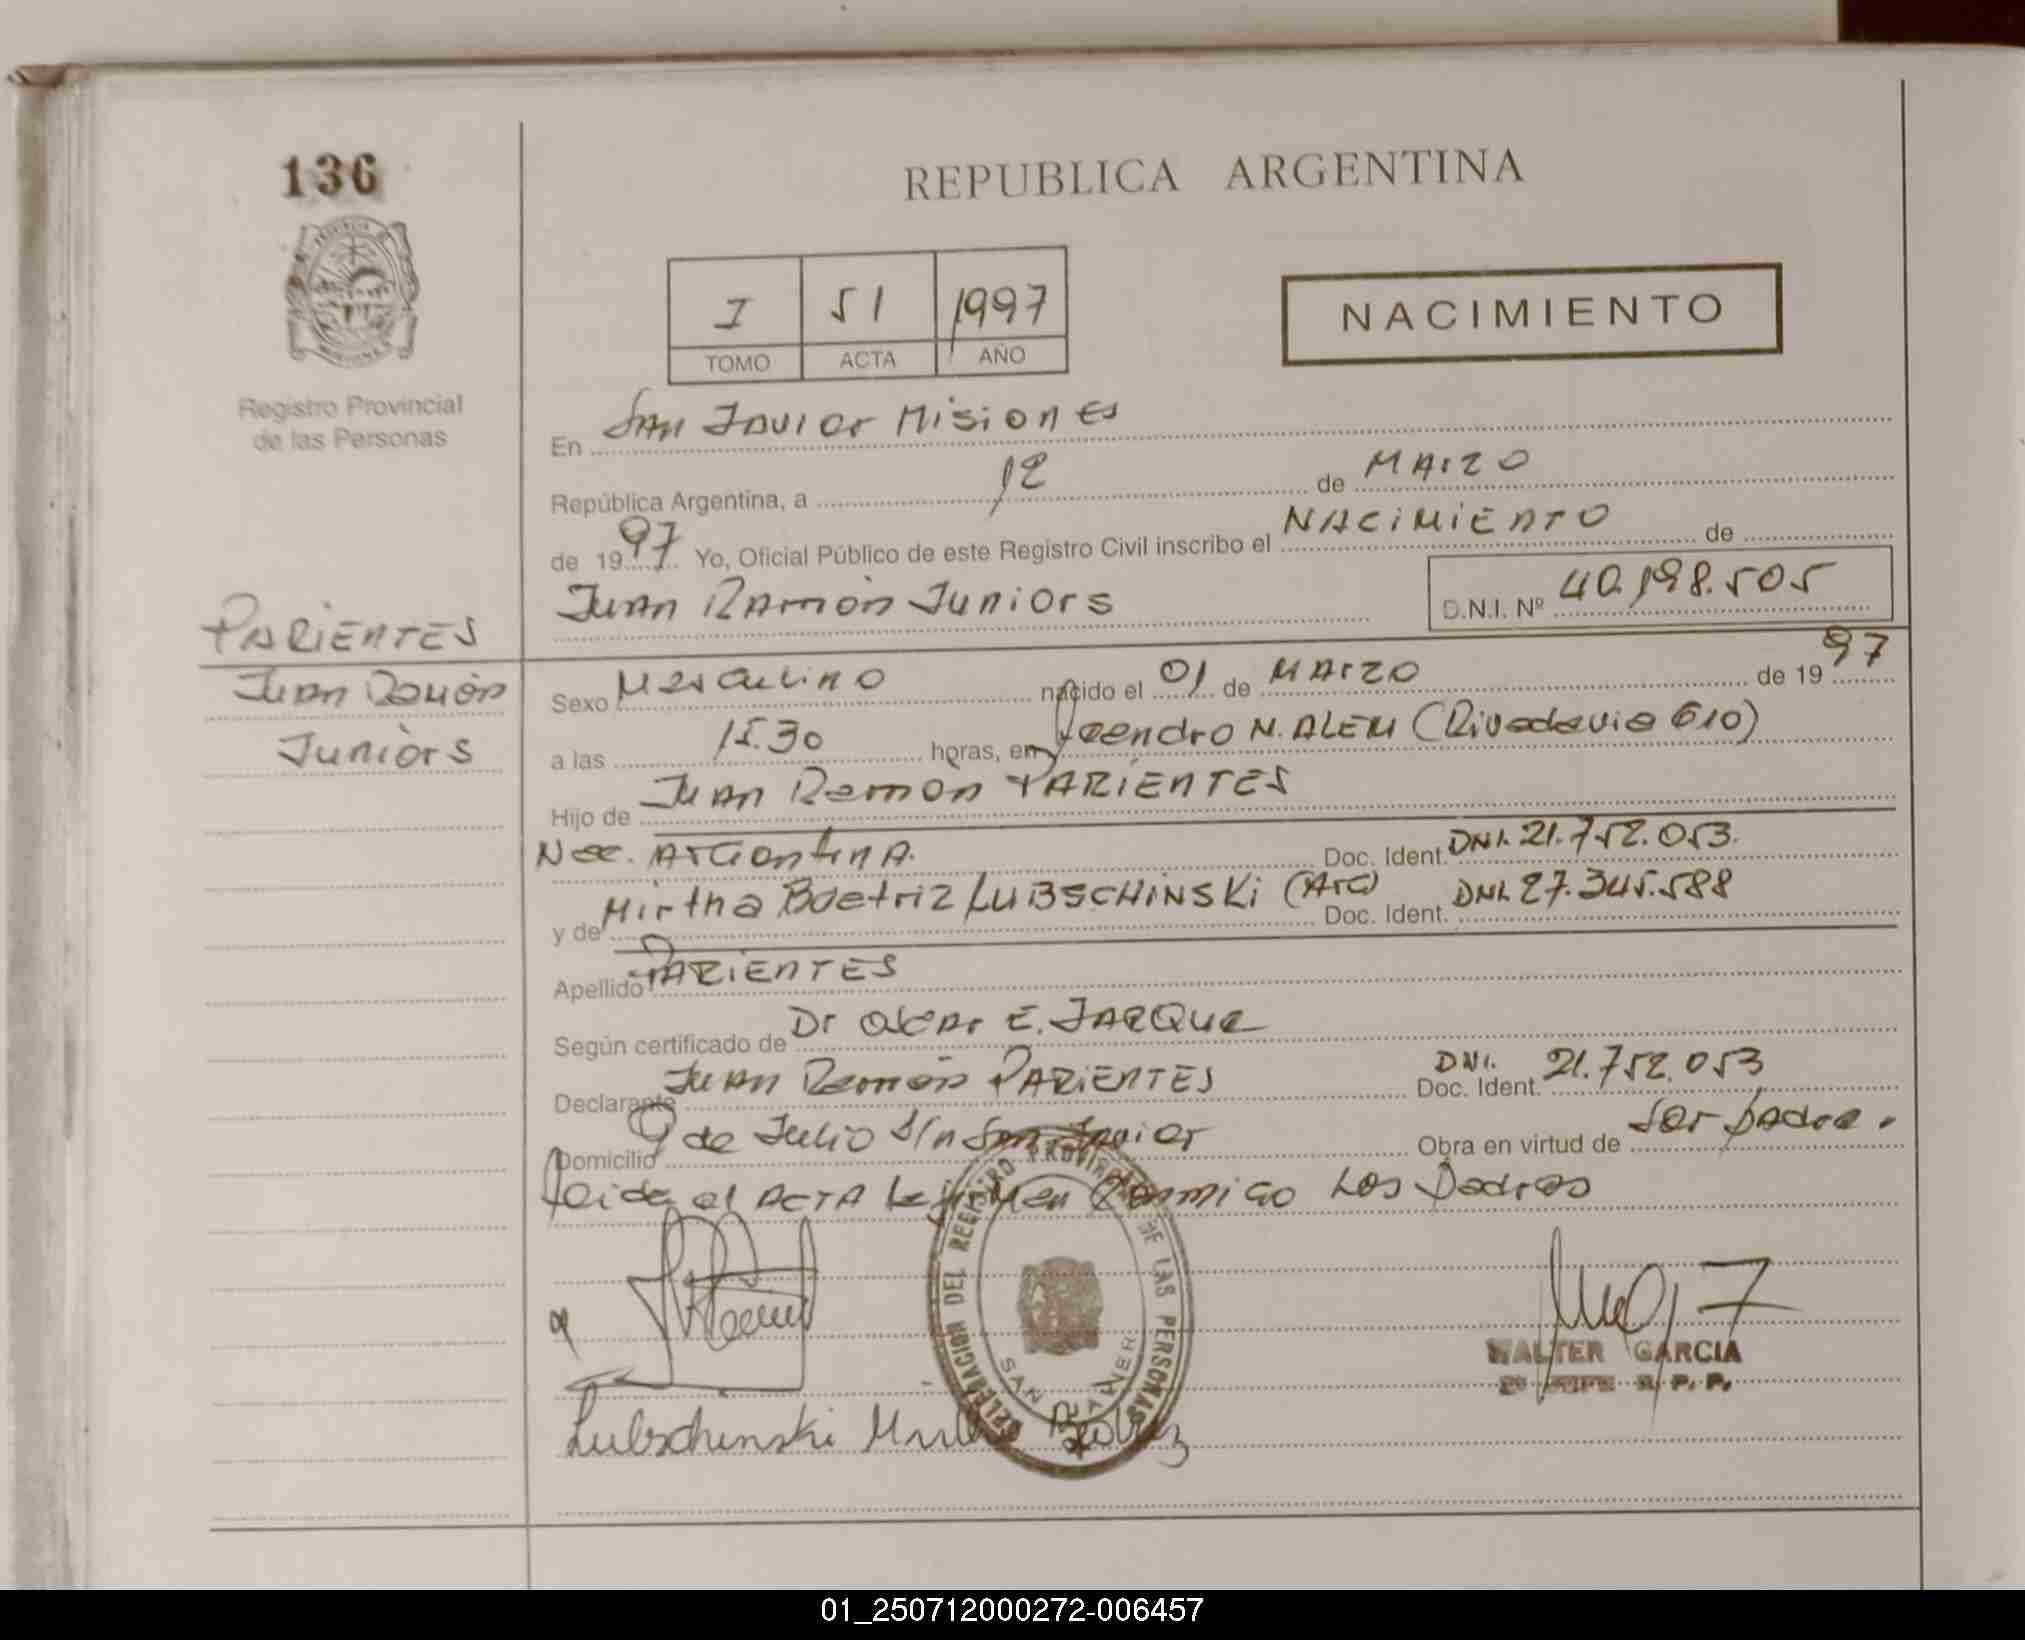 136
REPUBLICA ARGENTINA
I 51 1997
TOMO ACTA AÑO
NACIMIENTO
Registro Provincial
de las Personas
En San Javier Misiones
República Argentina, a 12 de Marzo
de 1997 Yo, Oficial Público de este Registro Civil inscribo el NACIMIENTO de
Juan Ramón Juniors D.N.I. Nº 40.198.505
PARIENTES
Juan Ramón
Juniors
Sexo Masculino nacido el 01 de Marzo de 1997
a las 15.30 horas, en Leandro N. ALEM (Rivadavia 610)
Hijo de Juan Ramon PARIENTES
Nac. Argentina. Doc. Ident. DNI. 21.752.053.
y de Mirtha Beatriz LUBSCHINSKI (Arg) Doc. Ident. DNI. 27.345.588
Apellido PARIENTES
Según certificado de Dr Oscar E. JARQUE
Declarante Juan Ramón PARIENTES Doc. Ident. DNI. 21.752.053
Domicilio 9 de Julio S/n San Javier Obra en virtud de Ser padre.
Leida el ACTA la firman conmigo Los Padres
DELEGACION DEL REGISTRO PROVINCIAL DE LAS PERSONAS
SAN JAVIER
WALTER GARCIA
R. P. P.
Lubschinski Mirtha Beatriz
01_250712000272-006457